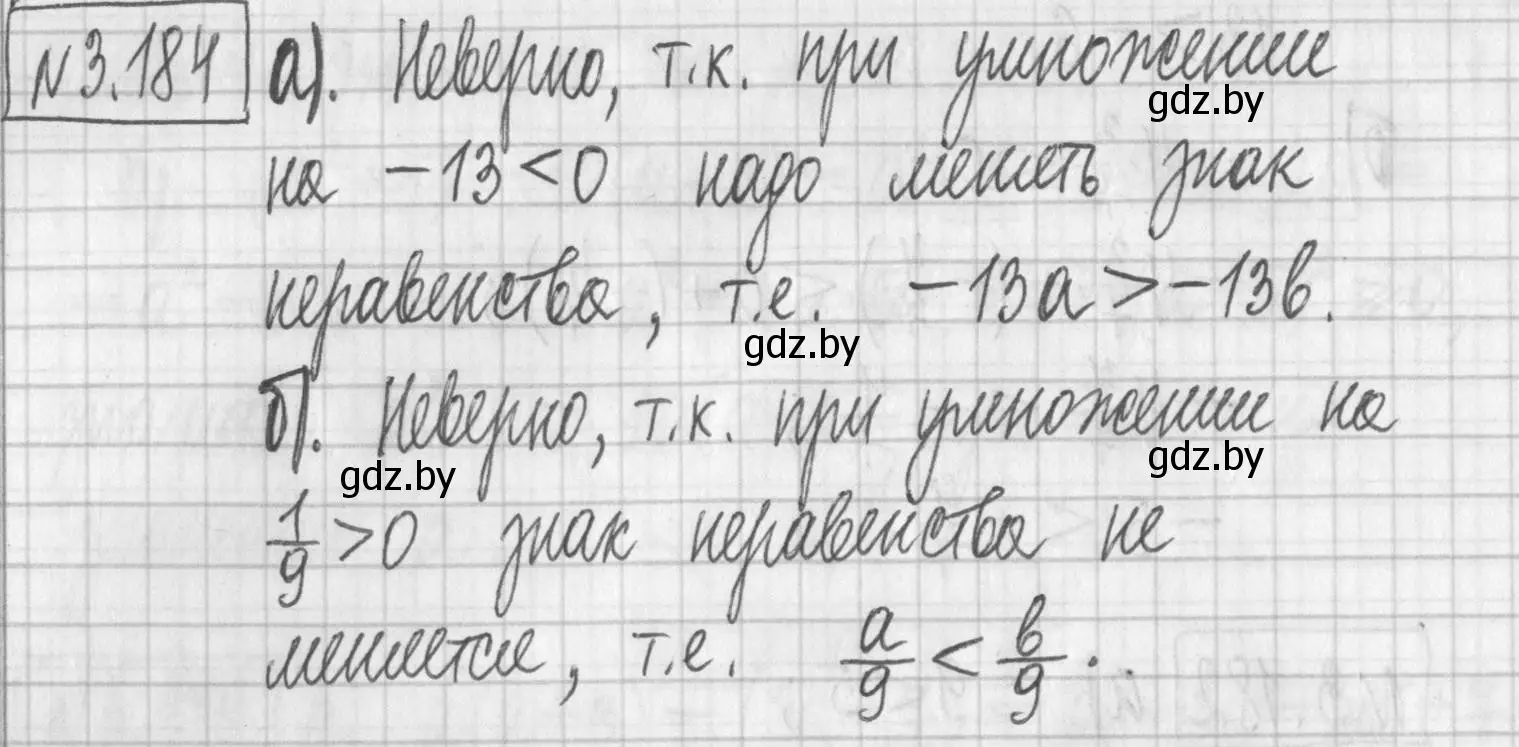 N3.184 а). Неверно, т.к. при умножении
gdz.by
на -13<0 надо менять знак
неравенства, т.е. -13a>-13b.
gdz.by
б). Неверно, т.к. при умножении на
gdz.by gdz.by
1/9 >0 знак неравенства не
меняется, т.е. a/9 < b/9.